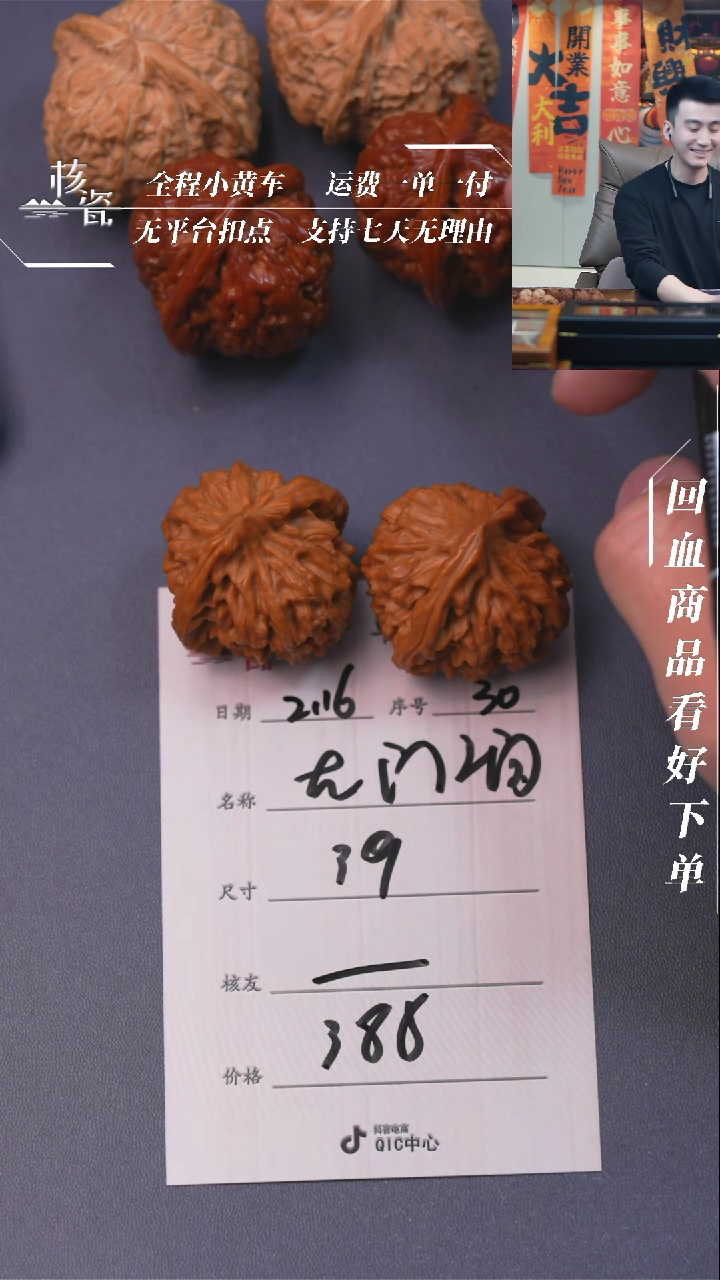 核瓷
全程小黄车 运费一单一付
无平台扣点 支持七天无理由
開業大吉
大利
事事如意
心
財興
HAPPY
NEW
YEAR
回血商品看好下单
日期 2.16 序号 30
名称
尺寸 39
核友 —
价格 388
抖音电商
QIC中心